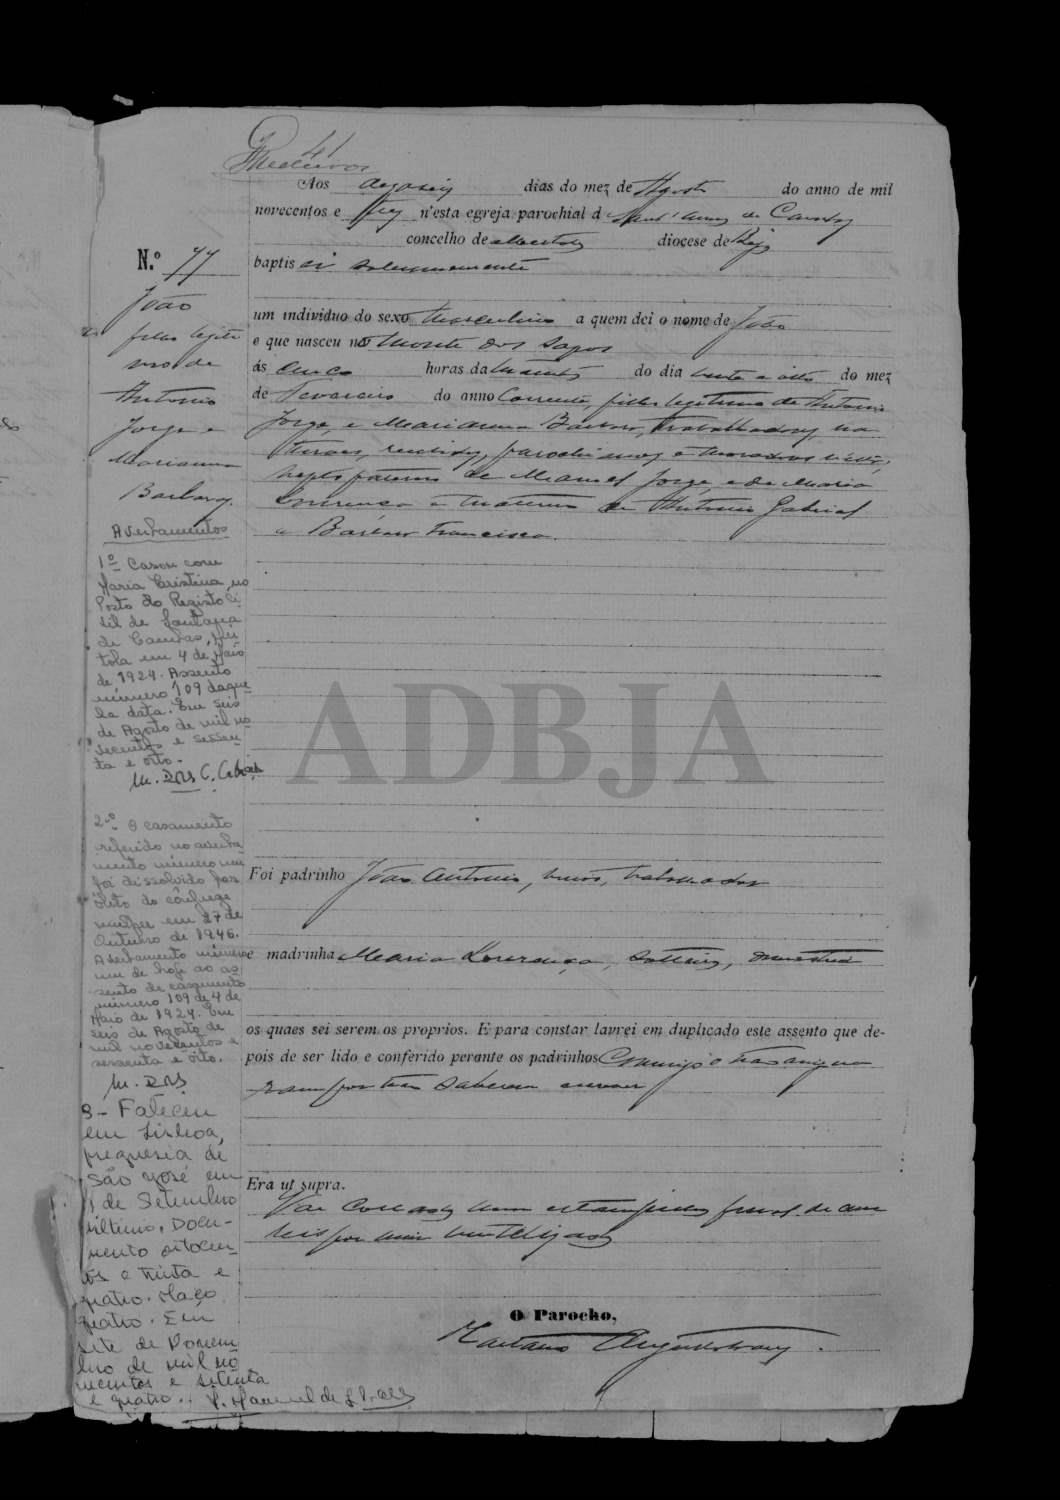 41
Medeiros
Aos dezaseis dias do mez de Agosto do anno de mil
novecentos e tres n'esta egreja parochial de Sant'Anna de Cambas
concelho de Mertola diocese de Beja
baptisei solemnemente
um individuo do sexo masculino a quem dei o nome de João
e que nasceu no Monte dos Sapos
ás cinco horas da manhã do dia vinte e oito do mez
de Fevereiro do anno corrente, filho legitimo de Antonio
Jorge, e Marianna Barbara, trabalhadores, na
recebidos, parochianos e moradores n'esta,
neto paterno de Manuel Jorge, e de Maria
Lourença e materno de Antonio Gabriel
e Barbara Francisca.
N.º 77
João
filho legiti
mo de
Antonio
Jorge e
Marianna
Barbara.
Averbamentos
1º Casou com
Maria Cristina, no
Posto do Registo Ci
vil de Santana
de Cambas, Mer
tola em 4 de Maio
de 1924. Assento
número 109 daque
la data. Em seis
de Agosto de mil no
vecentos e sessen
ta e oito.
2º O casamento
referido no averba
mento número um
foi dissolvido por
óbito do cônjuge
mulher em 27 de
Outubro de 1946.
Averbamento número
um de hoje ao as
sento de casamento
número 109 de 4 de
Maio de 1924. Em
seis de Agosto de
mil novecentos e
sessenta e oito.
3- Faleceu
em Lisboa,
freguesia de
São José em
de Setembro
último. Docu-
mento oitocen-
tos e trinta e
quatro. Maço
quatro. Em
sete de Novem
bro de mil no
vecentos e setenta
e quatro.
ADBJA
Foi padrinho João Antonio, trabalhador
e madrinha Maria Lourença, solteira, domestica
os quaes sei serem os proprios. E para constar lavrei em duplicado este assento que de-
pois de ser lido e conferido perante os padrinhos Commigo o não assigna
ram por não saberem escrever
Era ut supra.
Vae collada uma estampilha fiscal de cem
reis por mim inutilizada
O Parocho,
Caetano